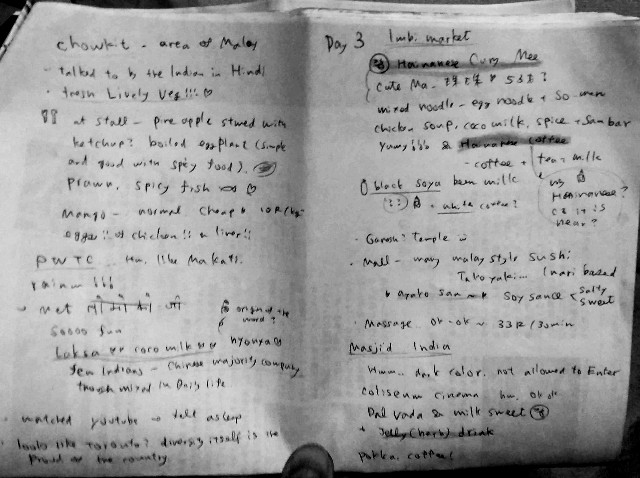 Chowkit - area of Malay
- talked to by the Indian in Hindi
- fresh Lively Veg!!! ♡
at stall - pineapple stewed with
ketchup? boiled eggplant (simple
and good with spicy food).
prawn, spicy fish ♡
mango - normal cheap
eggs!! of chicken!! & liver!!
PWTC ... Hm. like Makati.
rain !!!
met
soooo fun
origin of the
word?
Laksa coco milk nyonya
few Indians - Chinese majority company
though mixed in Daily life
watched youtube → fell asleep
looks like Toronto? diversity itself is the
proud of the country
Day 3 Imbi market
Hainanese Curry Mee
Cute Ma.
mixed noodle - egg noodle + so men
chicken soup, coco milk, spice + sambar
yumy!!! & Hainanese coffee
- coffee + tea + milk
why
Hainanese?
cz it is
near?
black soya bean milk
+ white coffee?
Ganesh? Temple
Mall - many malay style sushi
Takoyaki... Inari based
soy sauce < salty
sweet
Massage.. ok-ok ~ 33R/30min
Masjid India
Humm.. dark color. not allowed to Enter
coliseum cinema hm. ok ok
Dal vada & milk sweet
+ Jelly (herb) drink
pokka. coffee!